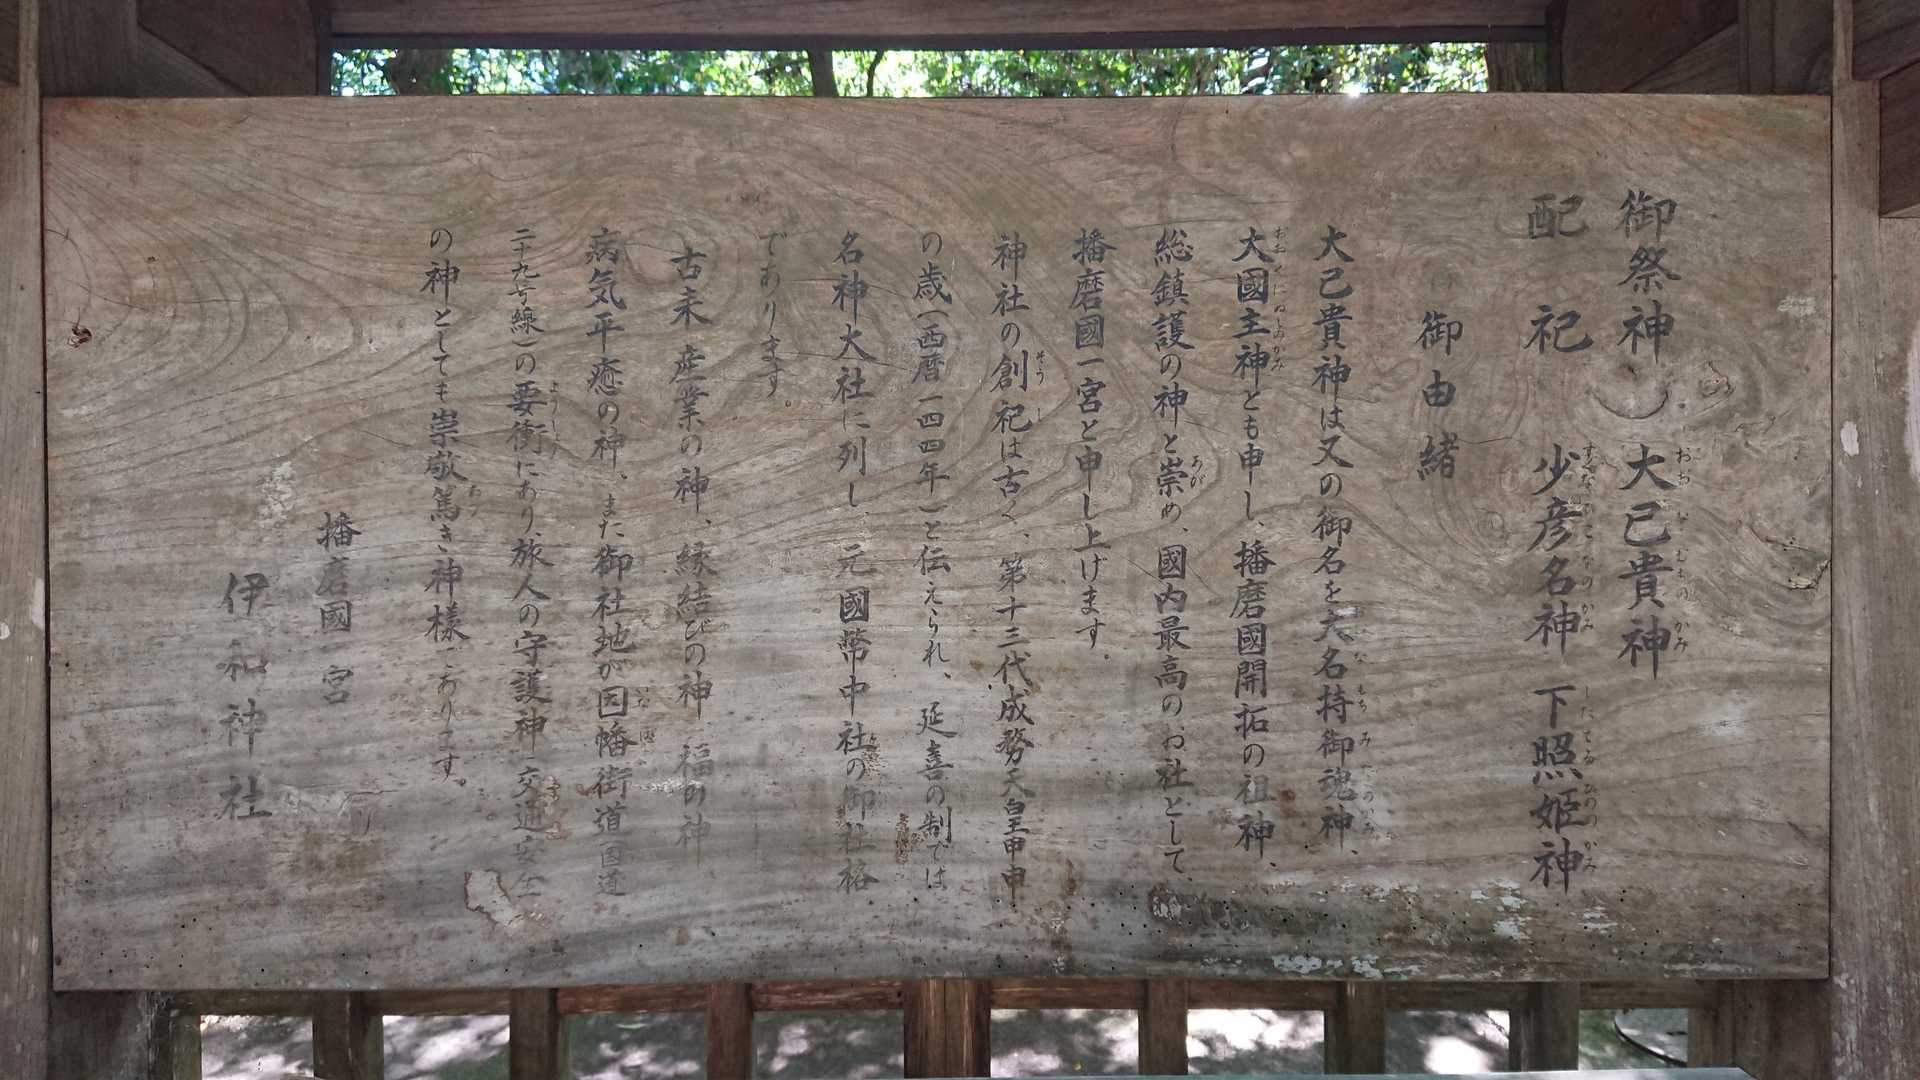 御祭神 大己貴神
配祀 少彦名神 下照姫神
御由緒
大己貴神は又の御名を大名持御魂神、
大國主神とも申し、播磨國開拓の祖神、
総鎮護の神と崇め、國内最高のお社として、
播磨國一宮と申し上げます。
神社の創祀は古く、第十三代成務天皇甲申
の歳(西暦一四四年)と伝えられ、延喜の制では
名神大社に列し、元國幣中社の御社格
であります。
古来 産業の神、縁結びの神 福の神
病気平癒の神、また御社地が因幡街道(国道
二十九号線)の要衝にあり、旅人の守護神 交通安全
の神としても崇敬篤き神様であります。
播磨國一宮
伊和神社